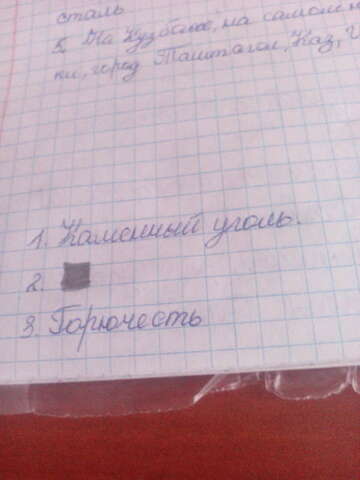 сталь
5. На Кузбасе, на самолен
ки, город Таштагол, Каз,
1. Каменный уголь.
2.
3. Горючесть